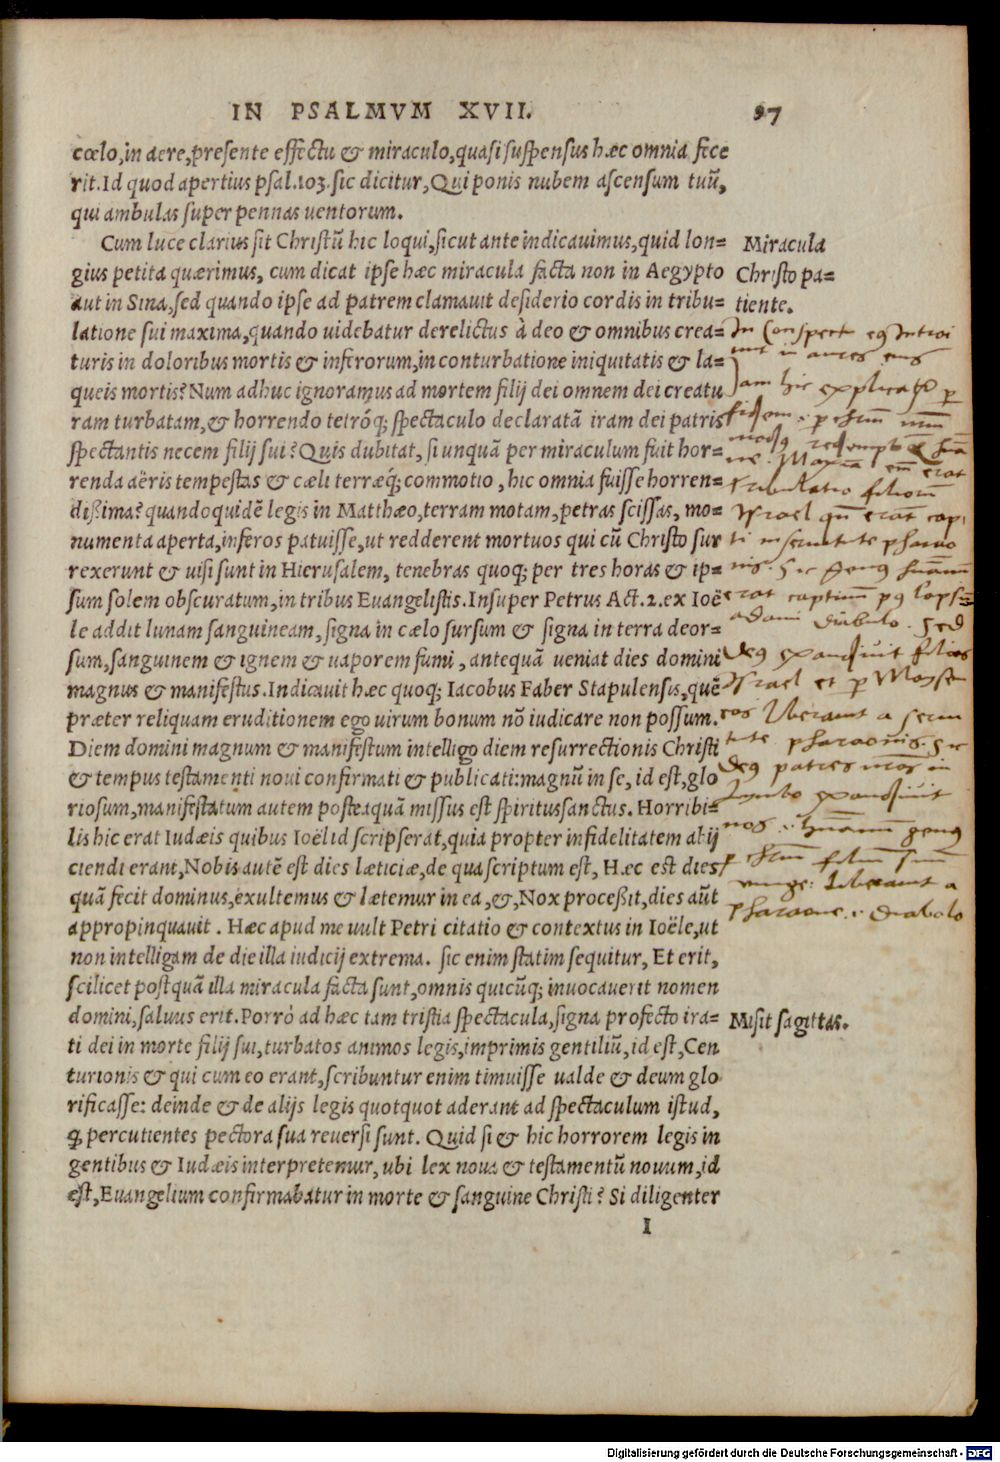 IN PSALMVM XVII. 97
cœlo, in aere, presente effectu & miraculo, quasi suspensus hæc omnia fece
rit. Id quod apertius psal. 103. sic dicitur, Qui ponis nubem ascensum tuũ,
qui ambulas super pennas uentorum.
Cum luce clarius sit Christũ hic loqui, sicut ante indicauimus, quid lon=
gius petita quærimus, cum dicat ipse hæc miracula facta non in Aegypto
aut in Sina, sed quando ipse ad patrem clamauit desiderio cordis in tribu=
latione sui maxima, quando uidebatur derelictus à deo & omnibus crea=
turis in doloribus mortis & inferorum, in conturbatione iniquitatis & la=
queis mortis? Num adhuc ignoramus ad mortem filij dei omnem dei creatu
ram turbatam, & horrendo tetróq; spectaculo declaratã iram dei patris
spectantis necem filij sui? Quis dubitat, si unquã per miraculum fuit hor=
renda aëris tempestas & cæli terræq́; commotio, hic omnia fuisse horren=
dißima? quandoquidẽ legis in Matthæo, terram motam, petras scissas, mo=
numenta aperta, inferos patuisse, ut redderent mortuos qui cũ Christo sur
rexerunt & uisi sunt in Hierusalem, tenebras quoq; per tres horas & ip=
sum solem obscuratum, in tribus Euangelistis. Insuper Petrus Act. 2. ex Ioë
le addit lunam sanguineam, signa in cælo sursum & signa in terra deor=
sum, sanguinem & ignem & uaporem fumi, antequã ueniat dies domini
magnus & manifestus. Indicauit hæc quoq; Iacobus Faber Stapulensis, quẽ
præter reliquam eruditionem ego uirum bonum nõ iudicare non possum.
Diem domini magnum & manifestum intelligo diem resurrectionis Christi
& tempus testamenti noui confirmati & publicati: magnũ in se, id est, glo
riosum, manifestatum autem posteaquã missus est spiritussanctus. Horribi=
lis hic erat Iudæis quibus Ioël id scripserat, quia propter infidelitatem abij
ciendi erant, Nobis autẽ est dies læticiæ, de qua scriptum est, Hæc est dies
quã fecit dominus, exultemus & lætemur in ea, &, Nox proceßit, dies aũt
appropinquauit. Hæc apud me uult Petri citatio & contextus in Ioële, ut
non intelligam de die illa iudicij extrema. sic enim statim sequitur, Et erit,
scilicet postquã illa miracula facta sunt, omnis quicũq; inuocauerit nomen
domini, saluus erit. Porrò ad hæc tam tristia spectacula, signa profecto ira=
ti dei in morte filij sui, turbatos animos legis, imprimis gentiliũ, id est, Cen
turionis & qui cum eo erant, scribuntur enim timuisse ualde & deum glo
rificasse: deinde & de alijs legis quotquot aderant ad spectaculum istud,
ꝙ percutientes pectora sua reuersi sunt. Quid si & hic horrorem legis in
gentibus & Iudæis interpretemur, ubi lex noua & testamentũ nouum, id
est, Euangelium confirmabatur in morte & sanguine Christi? Si diligenter
I
Miracula
Christo pa=
tiente.
In Conspect eꝰ Introi
uit in aures eius
Jam hic explicat p
fidem
redempto
tribulatio filiorũ
Israel erat cap
ti in seruitute pharao
nis. Sic genꝰ humanũ
erat captiuũ pꝰ lapsũ
adami diabulo. Sed
deꝰ exaudiuit filios
Israel et p Moysen
eos liberauit a serui
tute pharaonis. Sic
deꝰ patres nr̃os in
Lymbo exaudiuit
nos humanũ genꝰ
p filiũ suũ
liberauit a
pharaone diabolo
Misit sagittas.
Digitalisierung gefördert durch die Deutsche Forschungsgemeinschaft - DFG